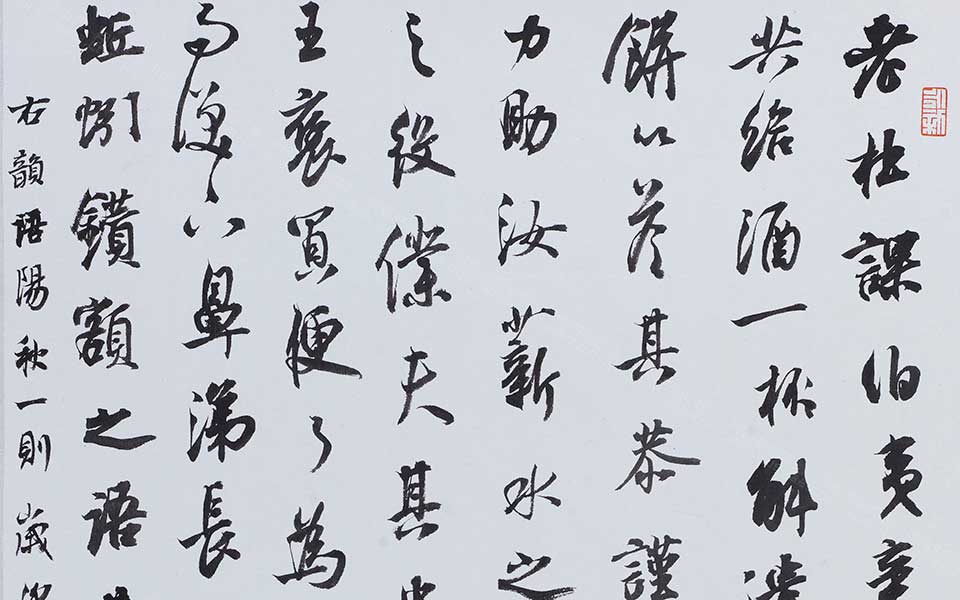 老杜課伯夷辛
共給酒一杯斛遣
餅以答其恭謹
力助汝薪水之
之役僕夫其
王褒買便了為
目淚下鼻涕長
蚯蚓鑽額之語
右韻語陽秋一則歲